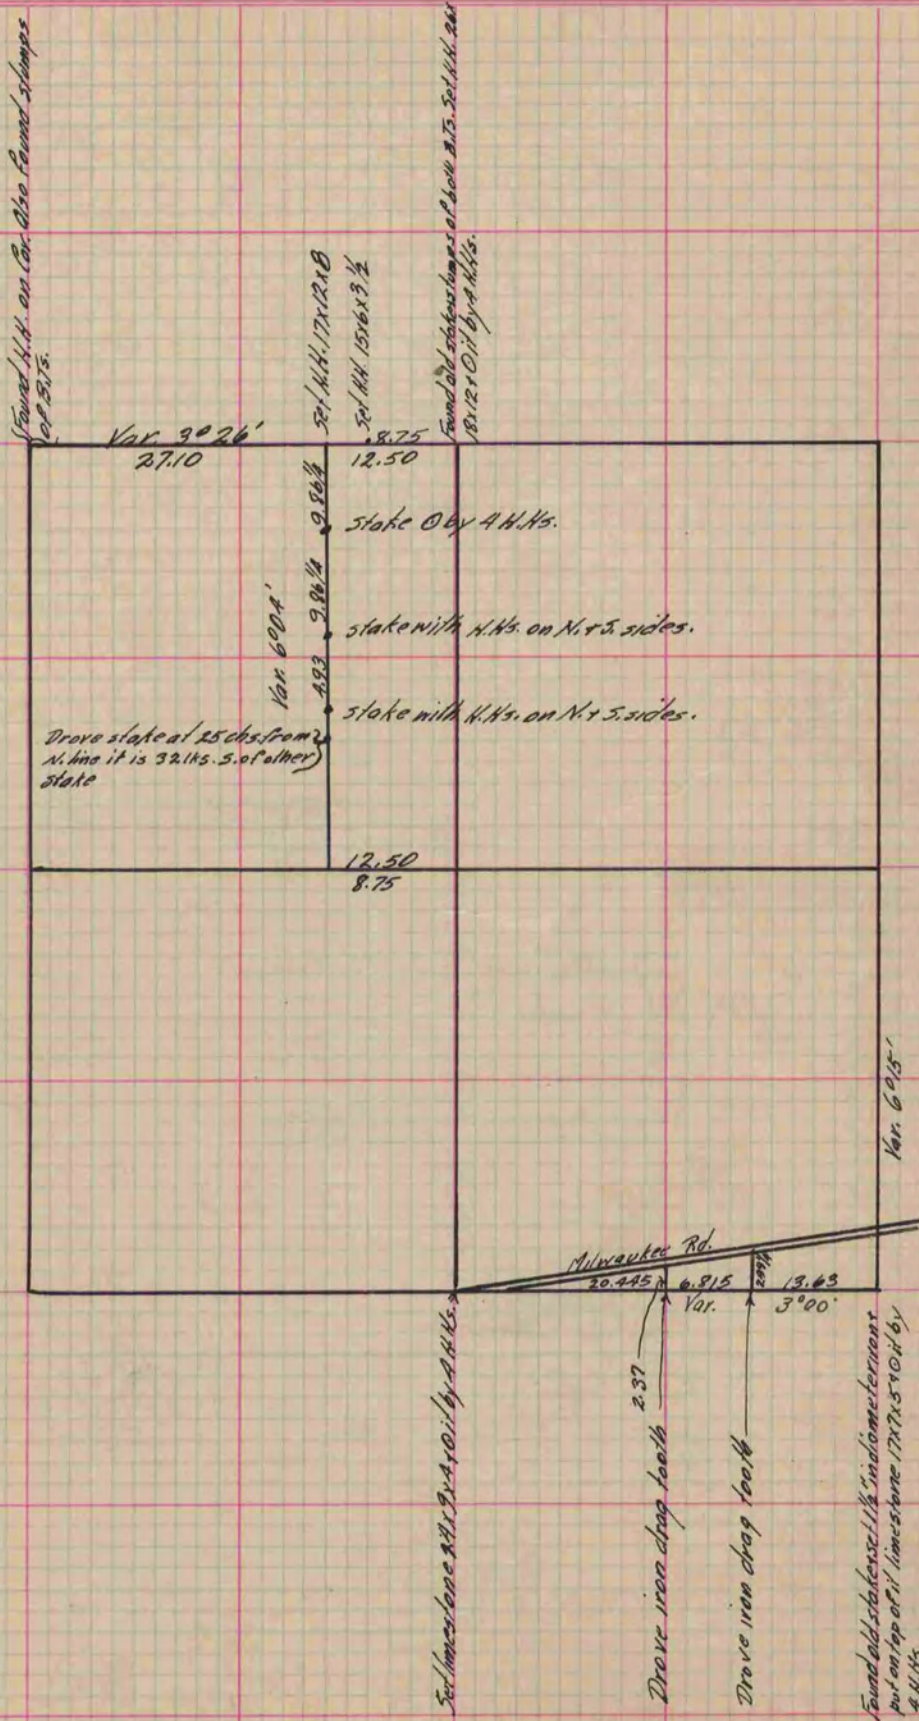 Found H.H. on Cor. Also found stumps
of B.Ts.
Set H.H. 17x12x8
Set H.H. 15x6x3½
Found old stake & stumps of both B.Ts. Set H.H. 26x
18x12 & ⊙ it by 4 H.Hs.
Var. 3°26'
27.10
8.75
12.50
9.86¼
stake ⊙ by 4 H.Hs.
9.86¼
Var. 6°04'
stake with H.Hs. on N. & S. sides.
4.93
stake with H.Hs. on N. & S. sides.
Drove stake at 25 chs. from
N. line it is 32 lks. S. of other
stake
12.50
8.75
Var. 6°15'
Milwaukee Rd.
20.445
6.815
13.63
Var. 3°00'
2.37
Set limestone 24x9x4 & ⊙ it by 4 H.Hs.
Drove iron drag tooth
Drove iron drag tooth
Found old stake & set 1½" in diameter iron &
put on top of it limestone 17x7x5 & ⊙ it by
4 H.Hs.